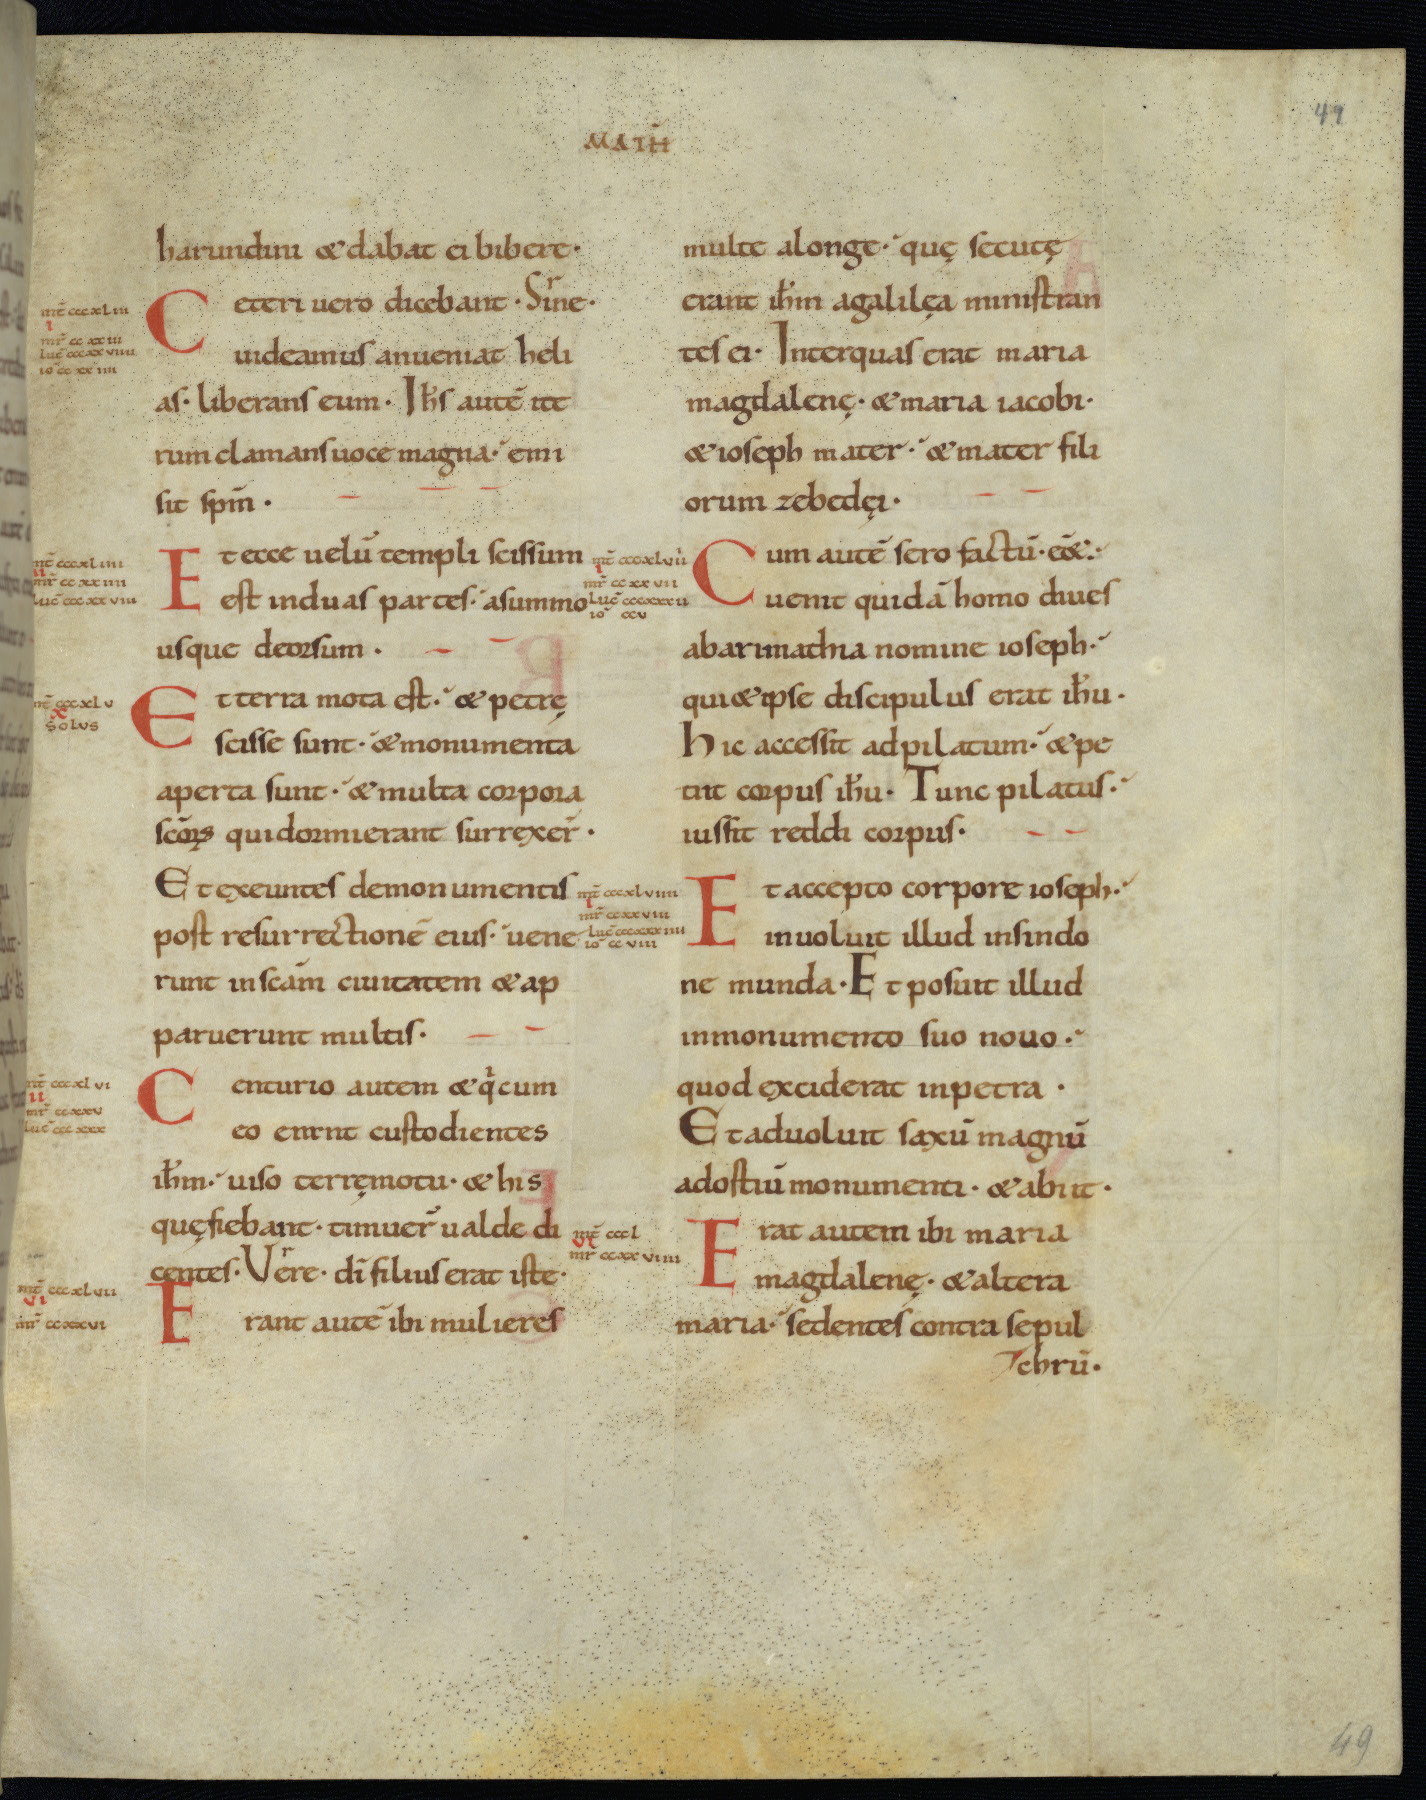 MATH
49
harundini & dabat ei bibere·
Ceteri uero dicebant· Sine·
uideamus an ueniat heli
as· liberans eum· Ihs autē ite
rum clamans uoce magna· emi
sit spm̄·
Et ecce uelū templi scissum
est in duas partes· a summo
usque deorsum·
Et terra mota est· & petrę
scisse sunt· & monumenta
aperta sunt· & multa corpora
sc̄orꝝ qui dormierant surrexer̄·
Et exeuntes de monumentis
post resurrectionē eius· uene
runt in sc̄am ciuitatem & ap
paruerunt multis·
Centurio autem & q̇ cum
eo erant custodientes
ih̄m· uiso terręmotu· & his
quę fiebant· timuer̄ ualde di
centes· Vere· dī filius erat iste·
Erant autē ibi mulieres
mt̄ cccxliii
i
mr̄ ccxxiii
luc̄ cccxxviiii
io ccxxiiii
mt̄ cccxliiii
ii
mr̄ ccxxiiii
luc̄ cccxxviii
mt̄ cccxlv
x
solus
mt̄ cccxlvi
ii
mr̄ ccxxv
luc̄ cccxxx
mt̄ cccxlvii
vi
mr̄ ccxxvi
multe a longe· quę secutę
erant ih̄m a galilęa ministran
tes ei· Inter quas erat maria
magdalenę· & maria iacobi·
& ioseph mater· & mater fili
orum zebedęi·
Cum autē sero factū· eēt·
uenit quidā homo diues
ab arimathia nomine ioseph·
qui & ipse discipulus erat ih̄u·
Hic accessit ad pilatum· & pe
tiit corpus ih̄u· Tunc pilatus·
iussit reddi corpus·
Et accepto corpore ioseph·
inuoluit illud in sindo
ne munda· Et posuit illud
in monumento suo nouo·
quod exciderat in petra·
Et aduoluit saxū magnū
ad ostiū monumenti· & abiit·
Erat autem ibi maria
magdalenę· & altera
maria· sedentes contra sepul
chrū·
mt̄ cccxlviii
i
mr̄ ccxxvii
luc̄ cccxxxii
io ccv
mt̄ cccxlviiii
i
mr̄ ccxxviii
luc̄ cccxxxiiii
io ccviii
mt̄ cccl
vi
mr̄ ccxxviiii
49